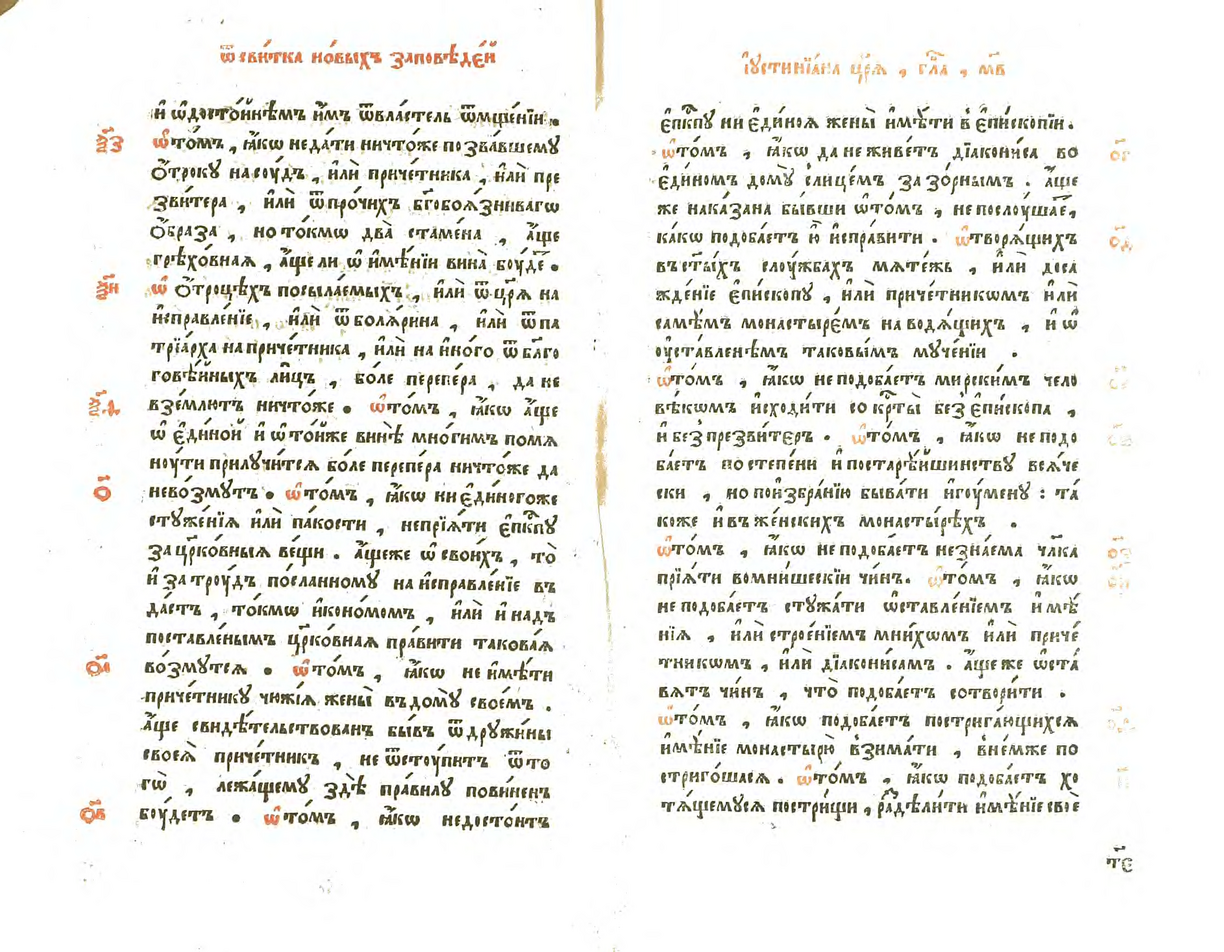 ѿ сви́тка но́выхъ за́повѣде́й
и҆ ѡ҆достои́нѣмъ и҆́мъ ѿвла́стель ѿмще́нїи .
ѯ҃з
ѡ҆то́мъ , ꙗ҆́кѡ недати ничто́же позва́вшему
ѻ҆́троку насоу́дъ , и҆лѝ приче́тника , и҆лѝ пре
зви́тера , и҆лѝ ѿпро́чихъ бг҃обоѧ́знивагѡ
ѻ҆́браза , но то́кмѡ два̀ ста́мена , а҆́ще
грѣхо́вная , а҆́ще ли ѡ҆ и҆мѣ́нїи вина̀ боу́де .
ѯ҃и
ѡ҆ ѻ҆троцѣ́хъ посыла́емыхъ , и҆лѝ ѿ цр҃ѧ̀ на
и҆справле́нїе , и҆лѝ ѿ болѧ́рина , и҆лѝ ѿ па
трїа́рха на приче́тника , и҆лѝ на и҆но́го ѿ бл҃го
говѣ́йныхъ ли́цъ , бо́ле перепе́ра , да не
ѯ҃ѳ
взе́млютъ ничто́же . ѡ҆то́мъ , ꙗ҆́кѡ а҆́ще
ѡ҆ є҆ди́ной и҆ ѡ҆ то́йже винѣ̀ мно́гимъ помѧ
ноу́ти прилучи́тсѧ бо́ле перепе́ра ничто́же да
ѻ҃
нево́змутъ . ѡ҆то́мъ , ꙗ҆́кѡ ни є҆ди́ногоже
стуже́нїѧ и҆лѝ па́кости , непрїѧ́ти є҆пⷭ҇кпꙋ
за цр҃ко́вныѧ ве́щи . а҆́щеже ѡ҆ свои́хъ , то̀
и҆ за троу́дъ по́сланномꙋ на и҆справле́нїе въ
да́стъ , то́кмѡ и҆коно́момъ , и҆лѝ и҆ надъ
поста́вленымъ цр҃ко́внаѧ пра́вити такова́ѧ
ѻ҃а
во́змутсѧ . ѡ҆то́мъ , ꙗ҆́кѡ не и҆мѣ́ти
приче́тнику чюжі́ѧ жены̀ въ домꙋ̀ свое́мъ .
а҆́ще свидѣ́тельствованъ бы́въ ѿ дружи́ны
своеѧ̀ приче́тникъ , не ѿстоу́питъ ѿ то
гѡ̀ , лежа́щемꙋ здѣ̀ пра́вилу пови́ненъ
ѻ҃в
боу́детъ . ѡ҆то́мъ , ꙗ҆́кѡ недосто́итъ
і҆устинїа́на цр҃ѧ̀ , гла҃ , м҃в
є҆пⷭ҇кпꙋ ни є҆ди́ноѧ жены̀ и҆мѣ́ти в є҆пи́скопїи .
ѻ҃г
ѡ҆то́мъ , ꙗ҆́кѡ да не живе́тъ дїакони́са во
є҆ди́номъ домꙋ̀ слице́мъ за зо́рнымъ . а҆́ще
же наказа́на бы́вши ѡ҆то́мъ , не послоу́шае ,
ѻ҃д
ка́кѡ подоба́етъ ю҆̀ и҆спра́вити . ѡ҆творѧ́щихъ
въ ст҃ы́хъ слоу́жбахъ мѧте́жь , и҆лѝ доса
жде́нїе є҆пи́скопу , и҆лѝ приче́тникѡмъ и҆лѝ
самѣ́мъ монастыре́мъ на водѧ́щихъ , и҆ ѡ҆
оу҆ста́вленѣмъ таковы́мъ муче́нїи .
ѡ҆то́мъ , ꙗ҆́кѡ не подоба́етъ мирски́мъ чело
вѣ́кѡмъ и҆сходи́ти со кр҃ты̀ без̾ є҆пи́скопа ,
и҆ без̾ презви́теръ . ѡ҆то́мъ , ꙗ҆́кѡ не подо
ба́етъ по степе́ни и҆ по старѣ́йшинству всѧ́че
ски , но по и҆збра́нїю быва́ти и҆гоу́мену : та
коже и҆ въ же́нскихъ монасты́рѣхъ .
ѡ҆то́мъ , ꙗ҆́кѡ не подоба́етъ незна́ема чл҃ка
прїѧ́ти во мни́шескїи чи́нъ . ѡ҆то́мъ , ꙗ҆́кѡ
не подоба́етъ стужа́ти ѡ҆ставле́нїемъ и҆мѣ̀
нїѧ , и҆лѝ строе́нїемъ мни́хѡмъ и҆лѝ приче́
тникѡмъ , и҆лѝ дїакони́самъ . а҆́ще же ѡ҆ста́
вѧтъ чи́нъ , что̀ подоба́етъ сотвори́ти .
ѡ҆то́мъ , ꙗ҆́кѡ подоба́етъ постриза́ющихсѧ
и҆мѣ́нїе монастырю̀ взима́ти , в не́мже по
стриго́шасѧ . ѡ҆то́мъ , ꙗ҆́кѡ подоба́етъ хо
тѧ́щемусѧ постри́щи , раздѣли́ти и҆мѣ́нїе своѐ
т҃є